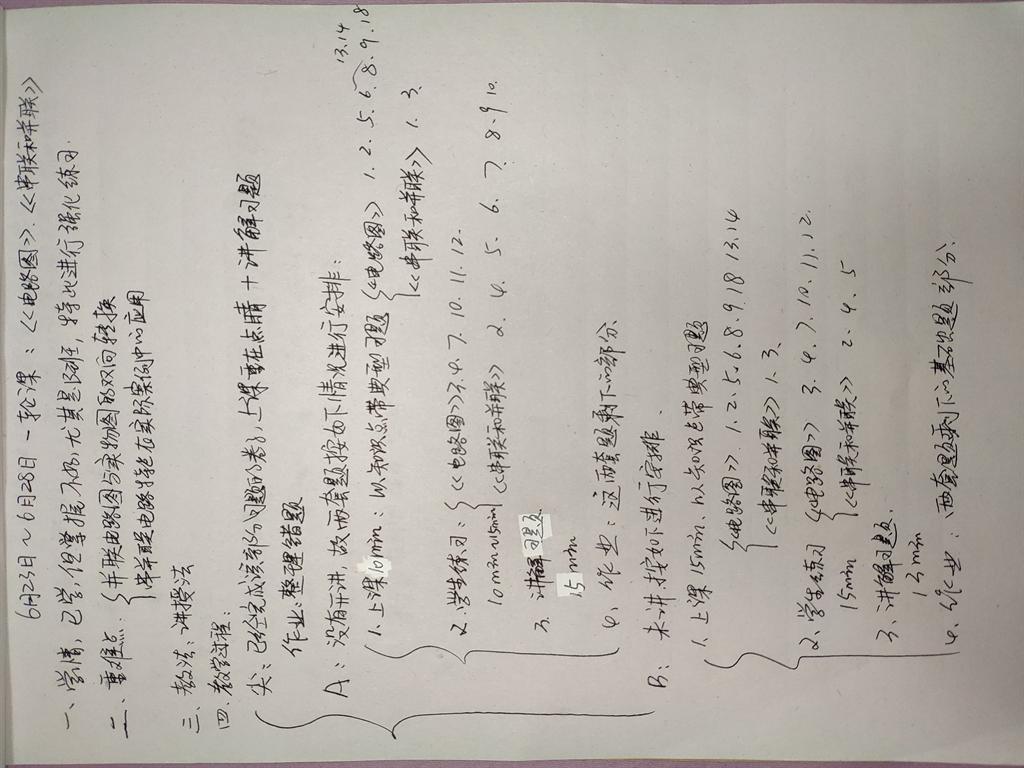 6月23日~6月28日一轮课：《电路图》《串联和并联》
一、学情，已学，但掌握不好，尤其是B班，特此进行强化练习.
二、重难点.{并联电路图与实物图的双向转换
串并联电路在实际案例中的应用
三、教法：讲授法
四、教学过程：
尖：已经完成该部分习题的卷子，上课重在点睛＋讲解习题
作业：整理错题
A：没有开讲，故两套题按如下情况进行安排：
1.上课10min：以知识点带典型习题{《电路图》1.2.5.6.8.9.18
13.14
《串联和并联》1.3.
2.学生练习：{《电路图》3.4.7.10.11.12.
10min~15min《串联和并联》2.4.5.6.7.8.9.10.
3.讲解习题.
15min
4、作业：这两套题剩下的部分.
B：未讲按如下进行安排.
1.上课15min.以知识点带典型习题
{《电路图》1.2.5.6.8.9.18 13.14
《串联和并联》1.3.
2、学生练习{《电路图》3.4.7.10.11.12.
15min《串联和并联》2.4.5
3、讲解习题.
13min
4、作业：两套题剩下的基础题部分.